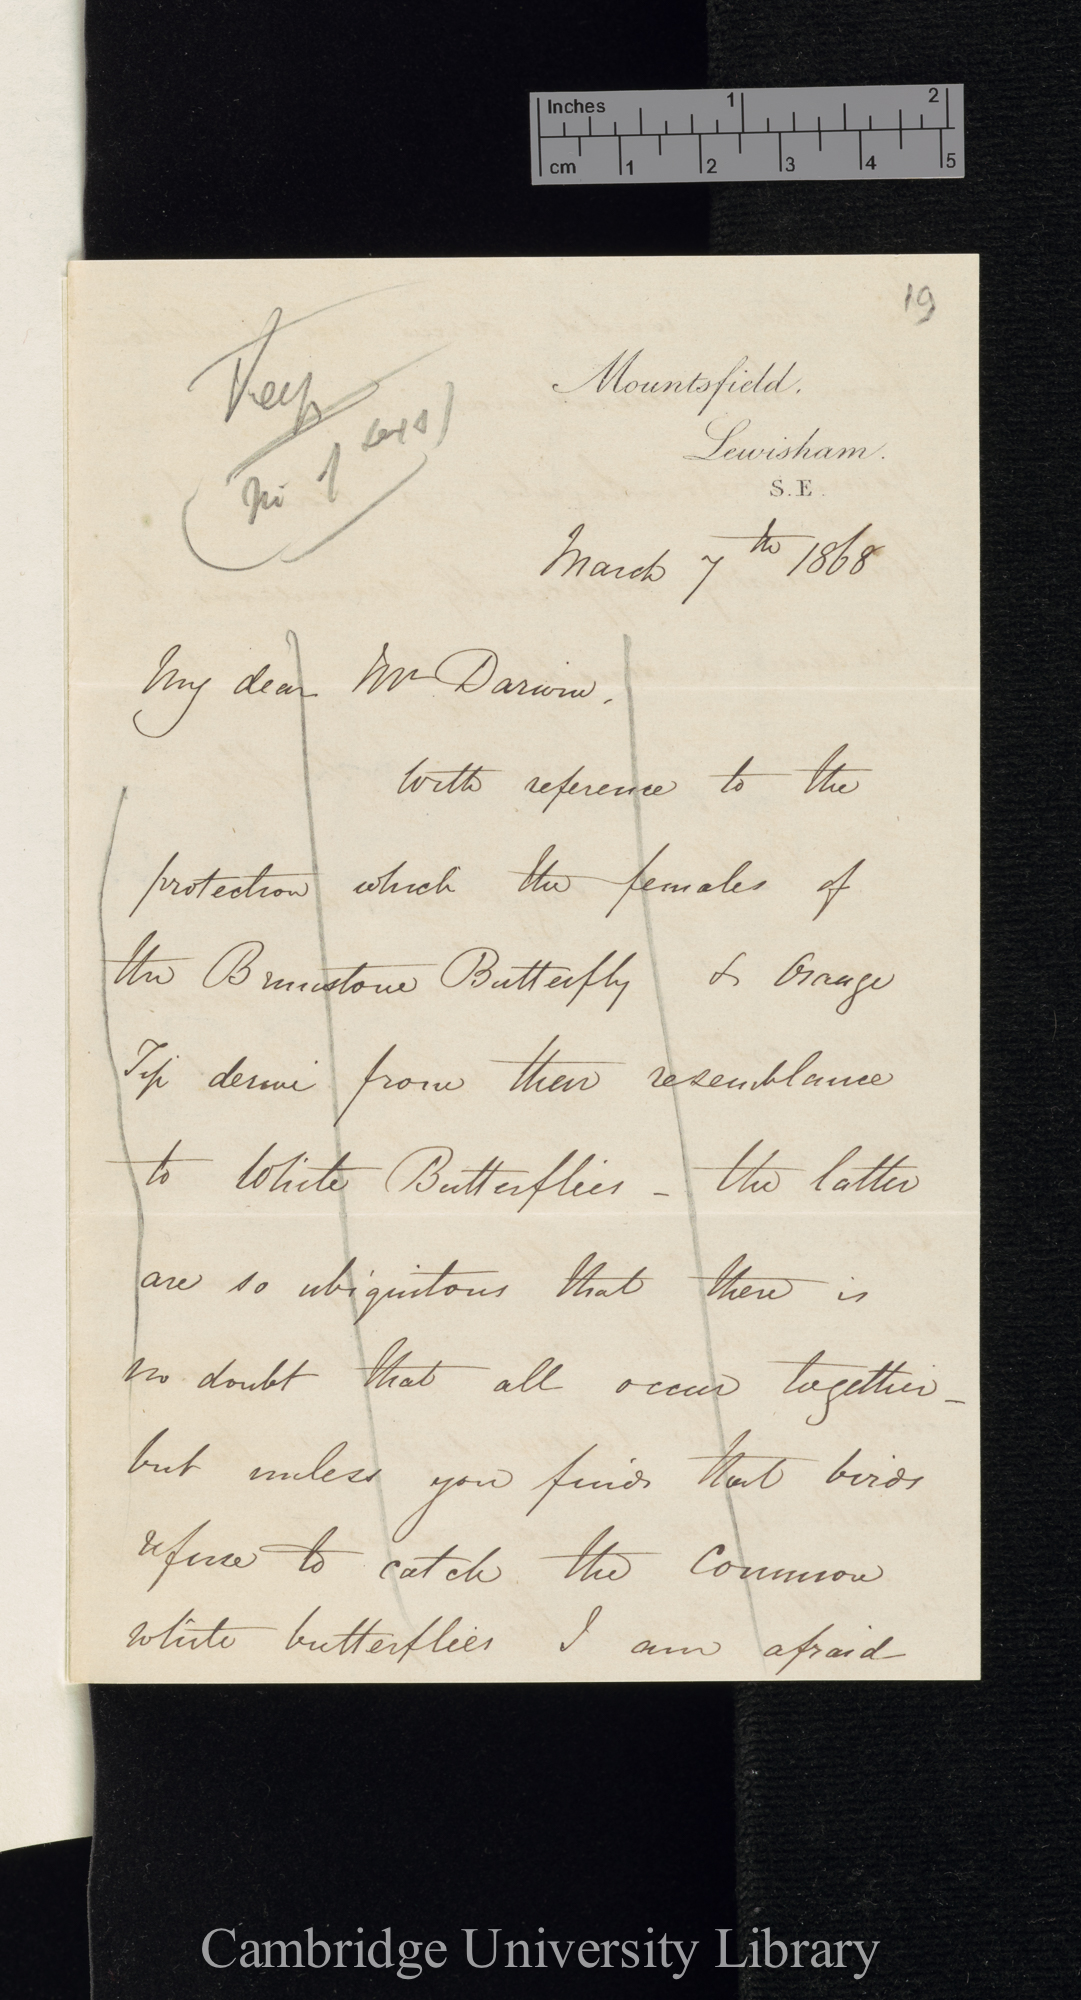 Inches 1 2
cm 1 2 3 4 5
19
Keep
Mountsfield.
Lewisham.
S.E.
March 7th 1868
My dear Mr Darwin,
With reference to the
protection which the females of
the Brimstone Butterfly & Orange
Tip derive from their resemblance
to White Butterflies - the latter
are so ubiquitous that there is
no doubt that all occur together -
but unless you find that birds
refuse to catch the Common
white butterflies I am afraid
Cambridge University Library